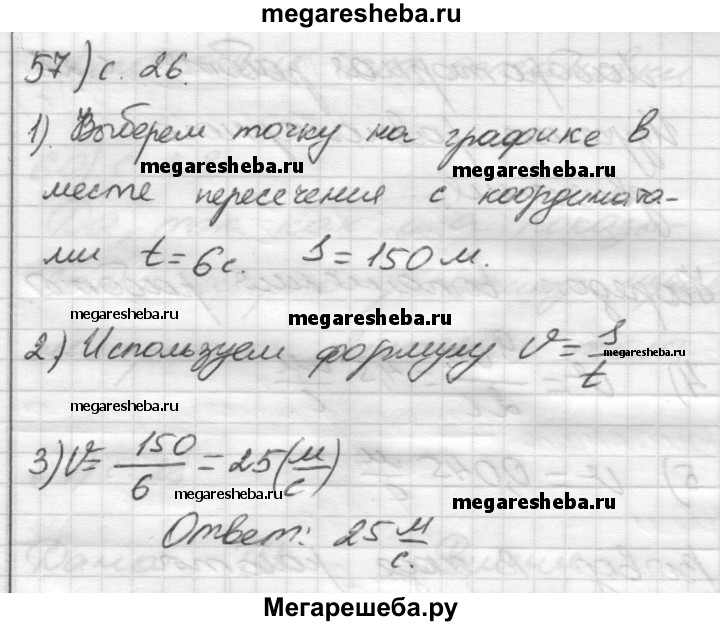 megaresheba.ru
57) с. 26.
1). Выберем точку на графике в
megaresheba.ru megaresheba.ru
месте пересечения с координата-
ми t = 6 с. S = 150 м.
megaresheba.ru megaresheba.ru
2) Используем формулу V = S/t
megaresheba.ru
megaresheba.ru
3) V = 150/6 = 25 (м/с)
megaresheba.ru megaresheba.ru
Ответ: 25 м/с.
Мегарешеба.ру